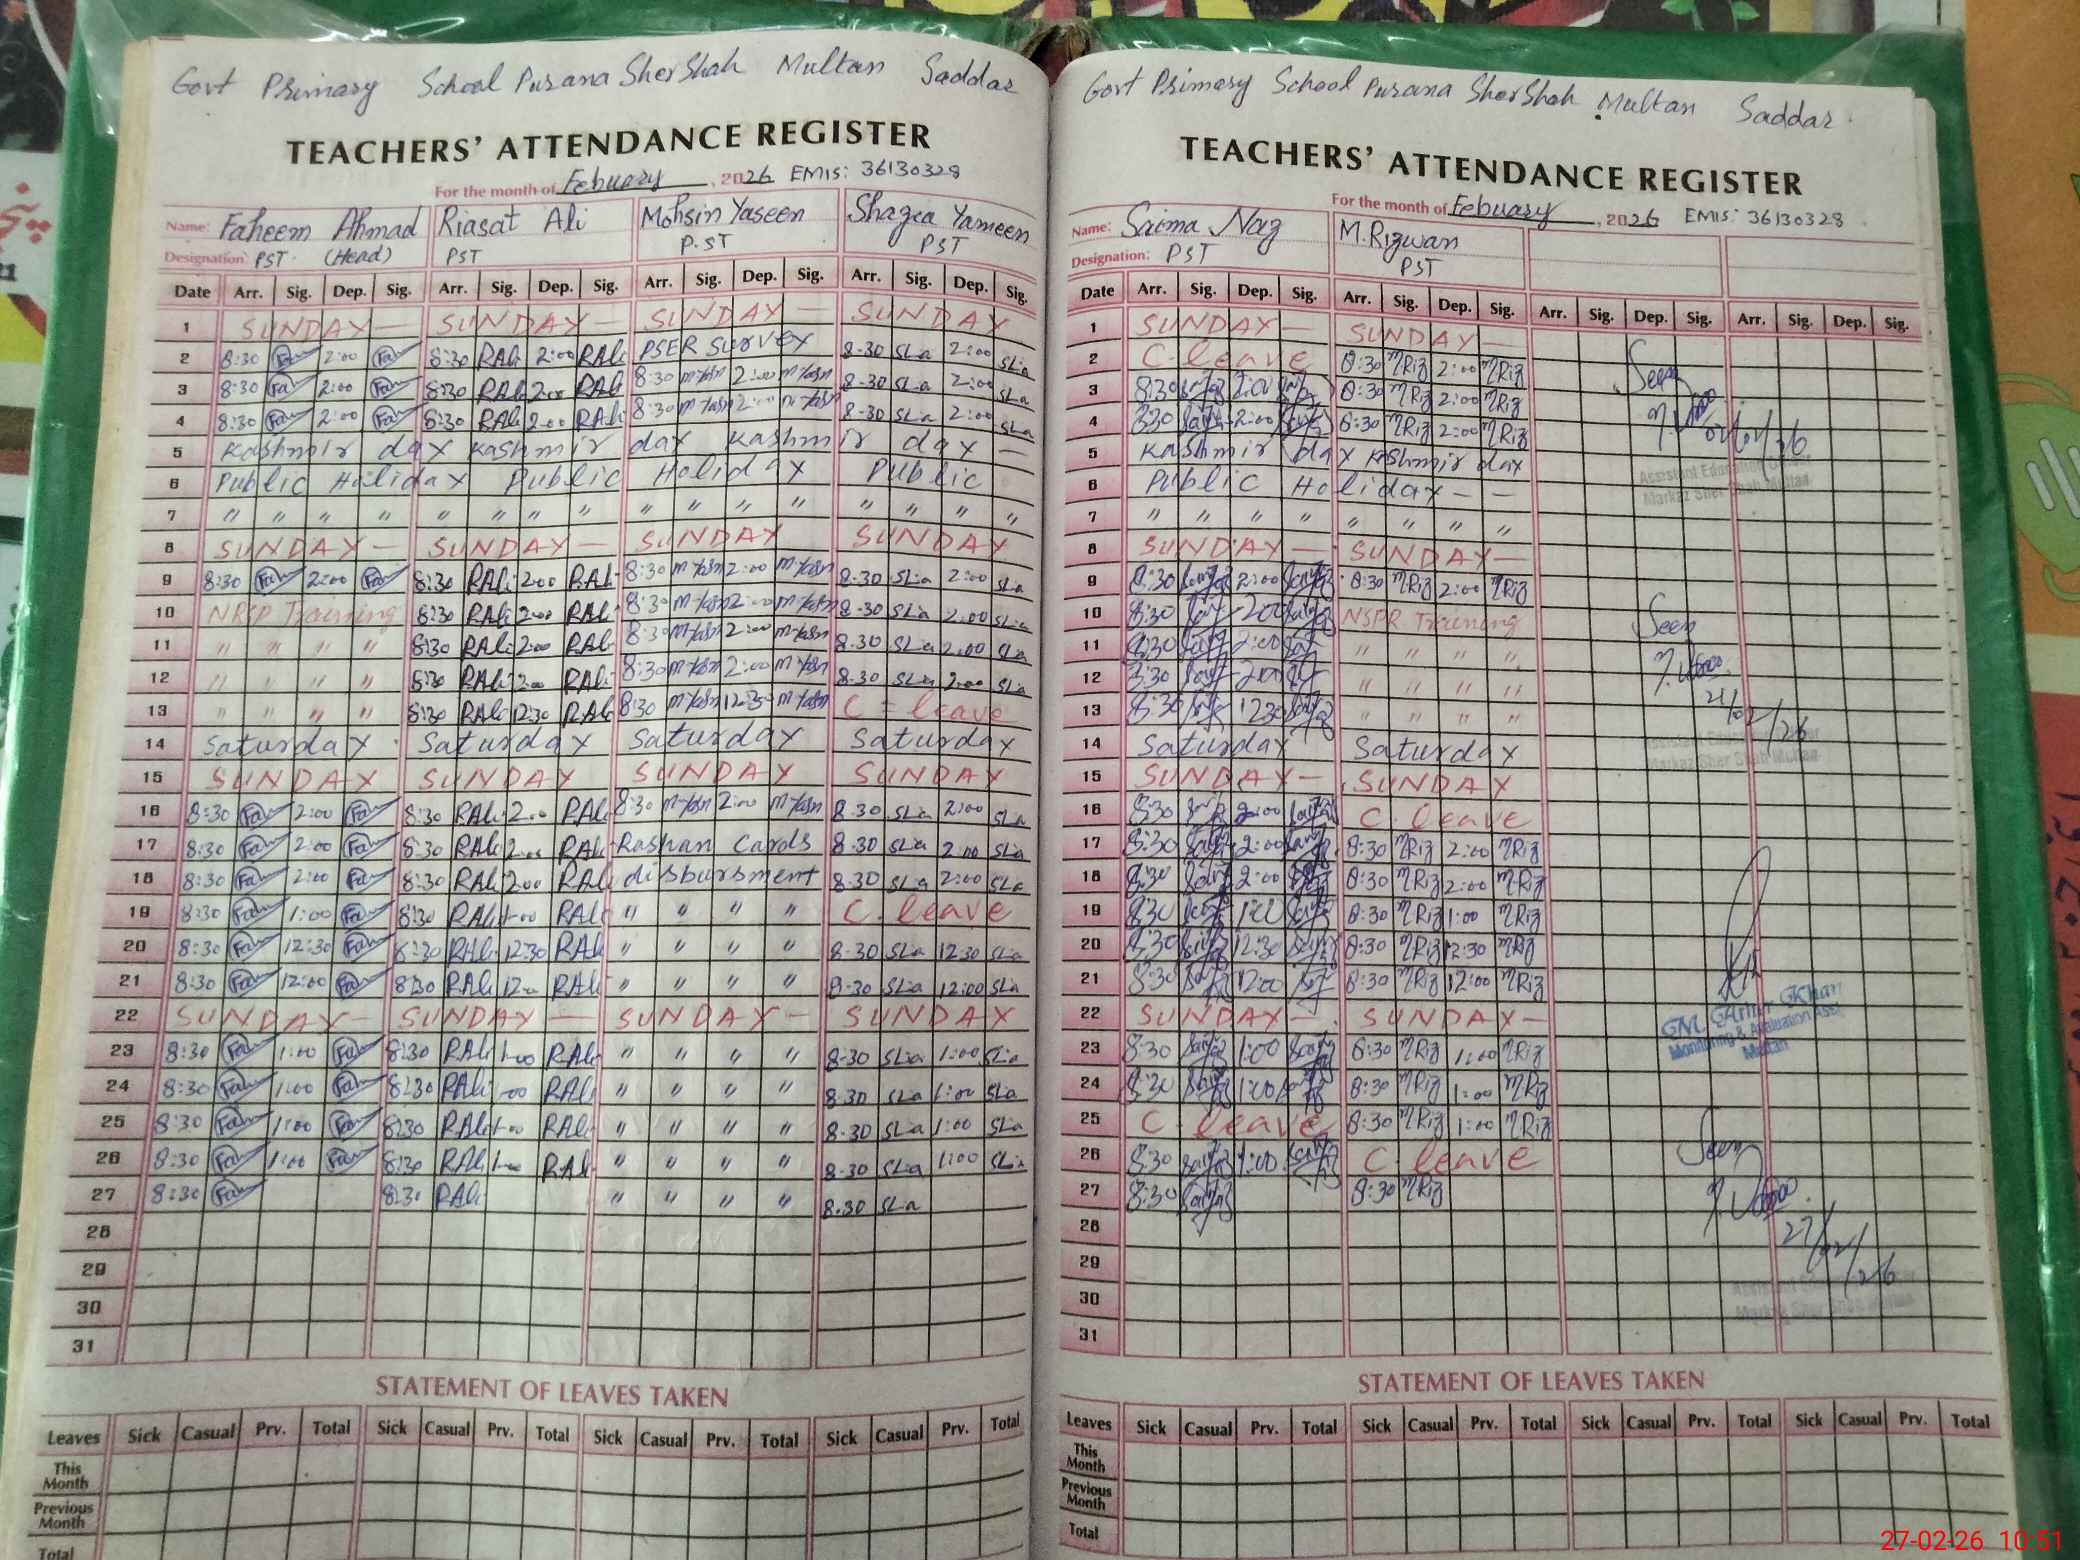 Govt Primary School Purana Sher Shah Multan Saddar
TEACHERS' ATTENDANCE REGISTER
For the month of Febuary, 2026 EMIS: 36130328
Name: Faheem Ahmad Riasat Ali Mohsin Yaseen Shazea Yameen
Designation: PST (Head) PST P.ST PST
Date Arr. Sig. Dep. Sig. Arr. Sig. Dep. Sig. Arr. Sig. Dep. Sig. Arr. Sig. Dep. Sig.
1 SUNDAY — SUNDAY — SUNDAY — SUNDAY
2 8:30 Fa 2:00 Fa 8:30 RAli 2:00 RAli PSER Survey 8-30 SLa 2:00 SLa
3 8:30 Fa 2:00 Fa 8:30 RAli 2:00 RAli 8:30 2:00 8-30 SLa 2:00 SLa
4 8:30 Fa 2:00 Fa 8:30 RAli 2:00 RAli 8:30 2:00 8-30 SLa 2:00 SLa
5 Kashmir day Kashmir day Kashmir day —
6 Public Holiday Public Holiday Public
7 " " " " " " " " " " " " " " " "
8 SUNDAY — SUNDAY — SUNDAY SUNDAY
9 8:30 Fa 2:00 Fa 8:30 RAli 2:00 RAli 8:30 2:00 8-30 SLa 2:00 SLa
10 NRSP Training 8:30 RAli 2:00 RAli 8:30 2:00 8-30 SLa 2:00 SLa
11 " " " " 8:30 RAli 2:00 RAli 8:30 2:00 8.30 SLa 2:00 SLa
12 " " " " 8:30 RAli 2:00 RAli 8:30 2:00 8-30 SLa 2:00 SLa
13 " " " " 8:30 RAli 12:30 RAli 8:30 12:30 C - leave
14 Saturday Saturday Saturday Saturday
15 SUNDAY SUNDAY SUNDAY SUNDAY
16 8:30 Fa 2:00 Fa 8:30 RAli 2:00 RAli 8:30 2:00 8.30 SLa 2:00 SLa
17 8:30 Fa 2:00 Fa 8:30 RAli 2:00 RAli Rashan Cards 8-30 SLa 2:00 SLa
18 8:30 Fa 2:00 Fa 8:30 RAli 2:00 RAli disbursment 8-30 SLa 2:00 SLa
19 8:30 Fa 1:00 Fa 8:30 RAli 1:00 RAli " " " " C. leave
20 8:30 Fa 12:30 Fa 8:30 RAli 12:30 RAli " " " " 8-30 SLa 12:30 SLa
21 8:30 Fa 12:00 Fa 8:30 RAli 12:00 RAli " " " " 8-30 SLa 12:00 SLa
22 SUNDAY — SUNDAY — SUNDAY — SUNDAY
23 8:30 Fa 1:00 Fa 8:30 RAli 1:00 RAli " " " " 8-30 SLa 1:00 SLa
24 8:30 Fa 1:00 Fa 8:30 RAli 1:00 RAli " " " " 8.30 SLa 1:00 SLa
25 8:30 Fa 1:00 Fa 8:30 RAli 1:00 RAli " " " " 8-30 SLa 1:00 SLa
26 8:30 Fa 1:00 Fa 8:30 RAli 1:00 RAli " " " " 8-30 SLa 1:00 SLa
27 8:30 Fa 8:30 RAli " " " " 8.30 SLa
28
29
30
31
STATEMENT OF LEAVES TAKEN
Leaves Sick Casual Prv. Total Sick Casual Prv. Total Sick Casual Prv. Total Sick Casual Prv. Total
This Month
Previous Month
Total
Govt Primary School Purana Sher Shah Multan Saddar
TEACHERS' ATTENDANCE REGISTER
For the month of Febuary, 2026 EMIS: 36130328
Name: Saima Naz M.Rizwan
Designation: PST PST
Date Arr. Sig. Dep. Sig. Arr. Sig. Dep. Sig. Arr. Sig. Dep. Sig. Arr. Sig. Dep. Sig.
1 SUNDAY — SUNDAY —
2 C. leave 8:30 MRiz 2:00 MRiz Seen
3 8:30 2:00 8:30 MRiz 2:00 MRiz
4 8:30 2:00 8:30 MRiz 2:00 MRiz
5 Kashmir day Kashmir day
6 Public Holiday — — Assistant Education Officer
Markaz Sher Shah Multan
7 " " " " " " " "
8 SUNDAY — SUNDAY —
9 8:30 2:00 8:30 MRiz 2:00 MRiz
10 8:30 2:00 NSPR Training Seen
11 8:30 2:00 " " " "
12 8:30 2:00 " " " "
13 8:30 12:30 " " " " 21/02/26
14 Saturday Saturday Assistant Education Officer
15 SUNDAY — SUNDAY Markaz Sher Shah Multan
16 8:30 2:00 C. leave
17 8:30 2:00 8:30 MRiz 2:00 MRiz
18 8:30 2:00 8:30 MRiz 2:00 MRiz
19 8:30 1:00 8:30 MRiz 1:00 MRiz
20 8:30 12:30 8:30 MRiz 12:30 MRiz
21 8:30 12:00 8:30 MRiz 12:00 MRiz
22 SUNDAY — SUNDAY —
Monitoring & Evaluation Asst.
Multan
23 8:30 1:00 8:30 MRiz 1:00 MRiz
24 8:30 1:00 8:30 MRiz 1:00 MRiz
25 C. leave 8:30 MRiz 1:00 MRiz
26 8:30 1:00 C. leave Seen
27 8:30 8:30 MRiz
28 27/02/26
29
30 Markaz Sher Shah Multan
31
STATEMENT OF LEAVES TAKEN
Leaves Sick Casual Prv. Total Sick Casual Prv. Total Sick Casual Prv. Total Sick Casual Prv. Total
This Month
Previous Month
Total
27-02-26 10:51